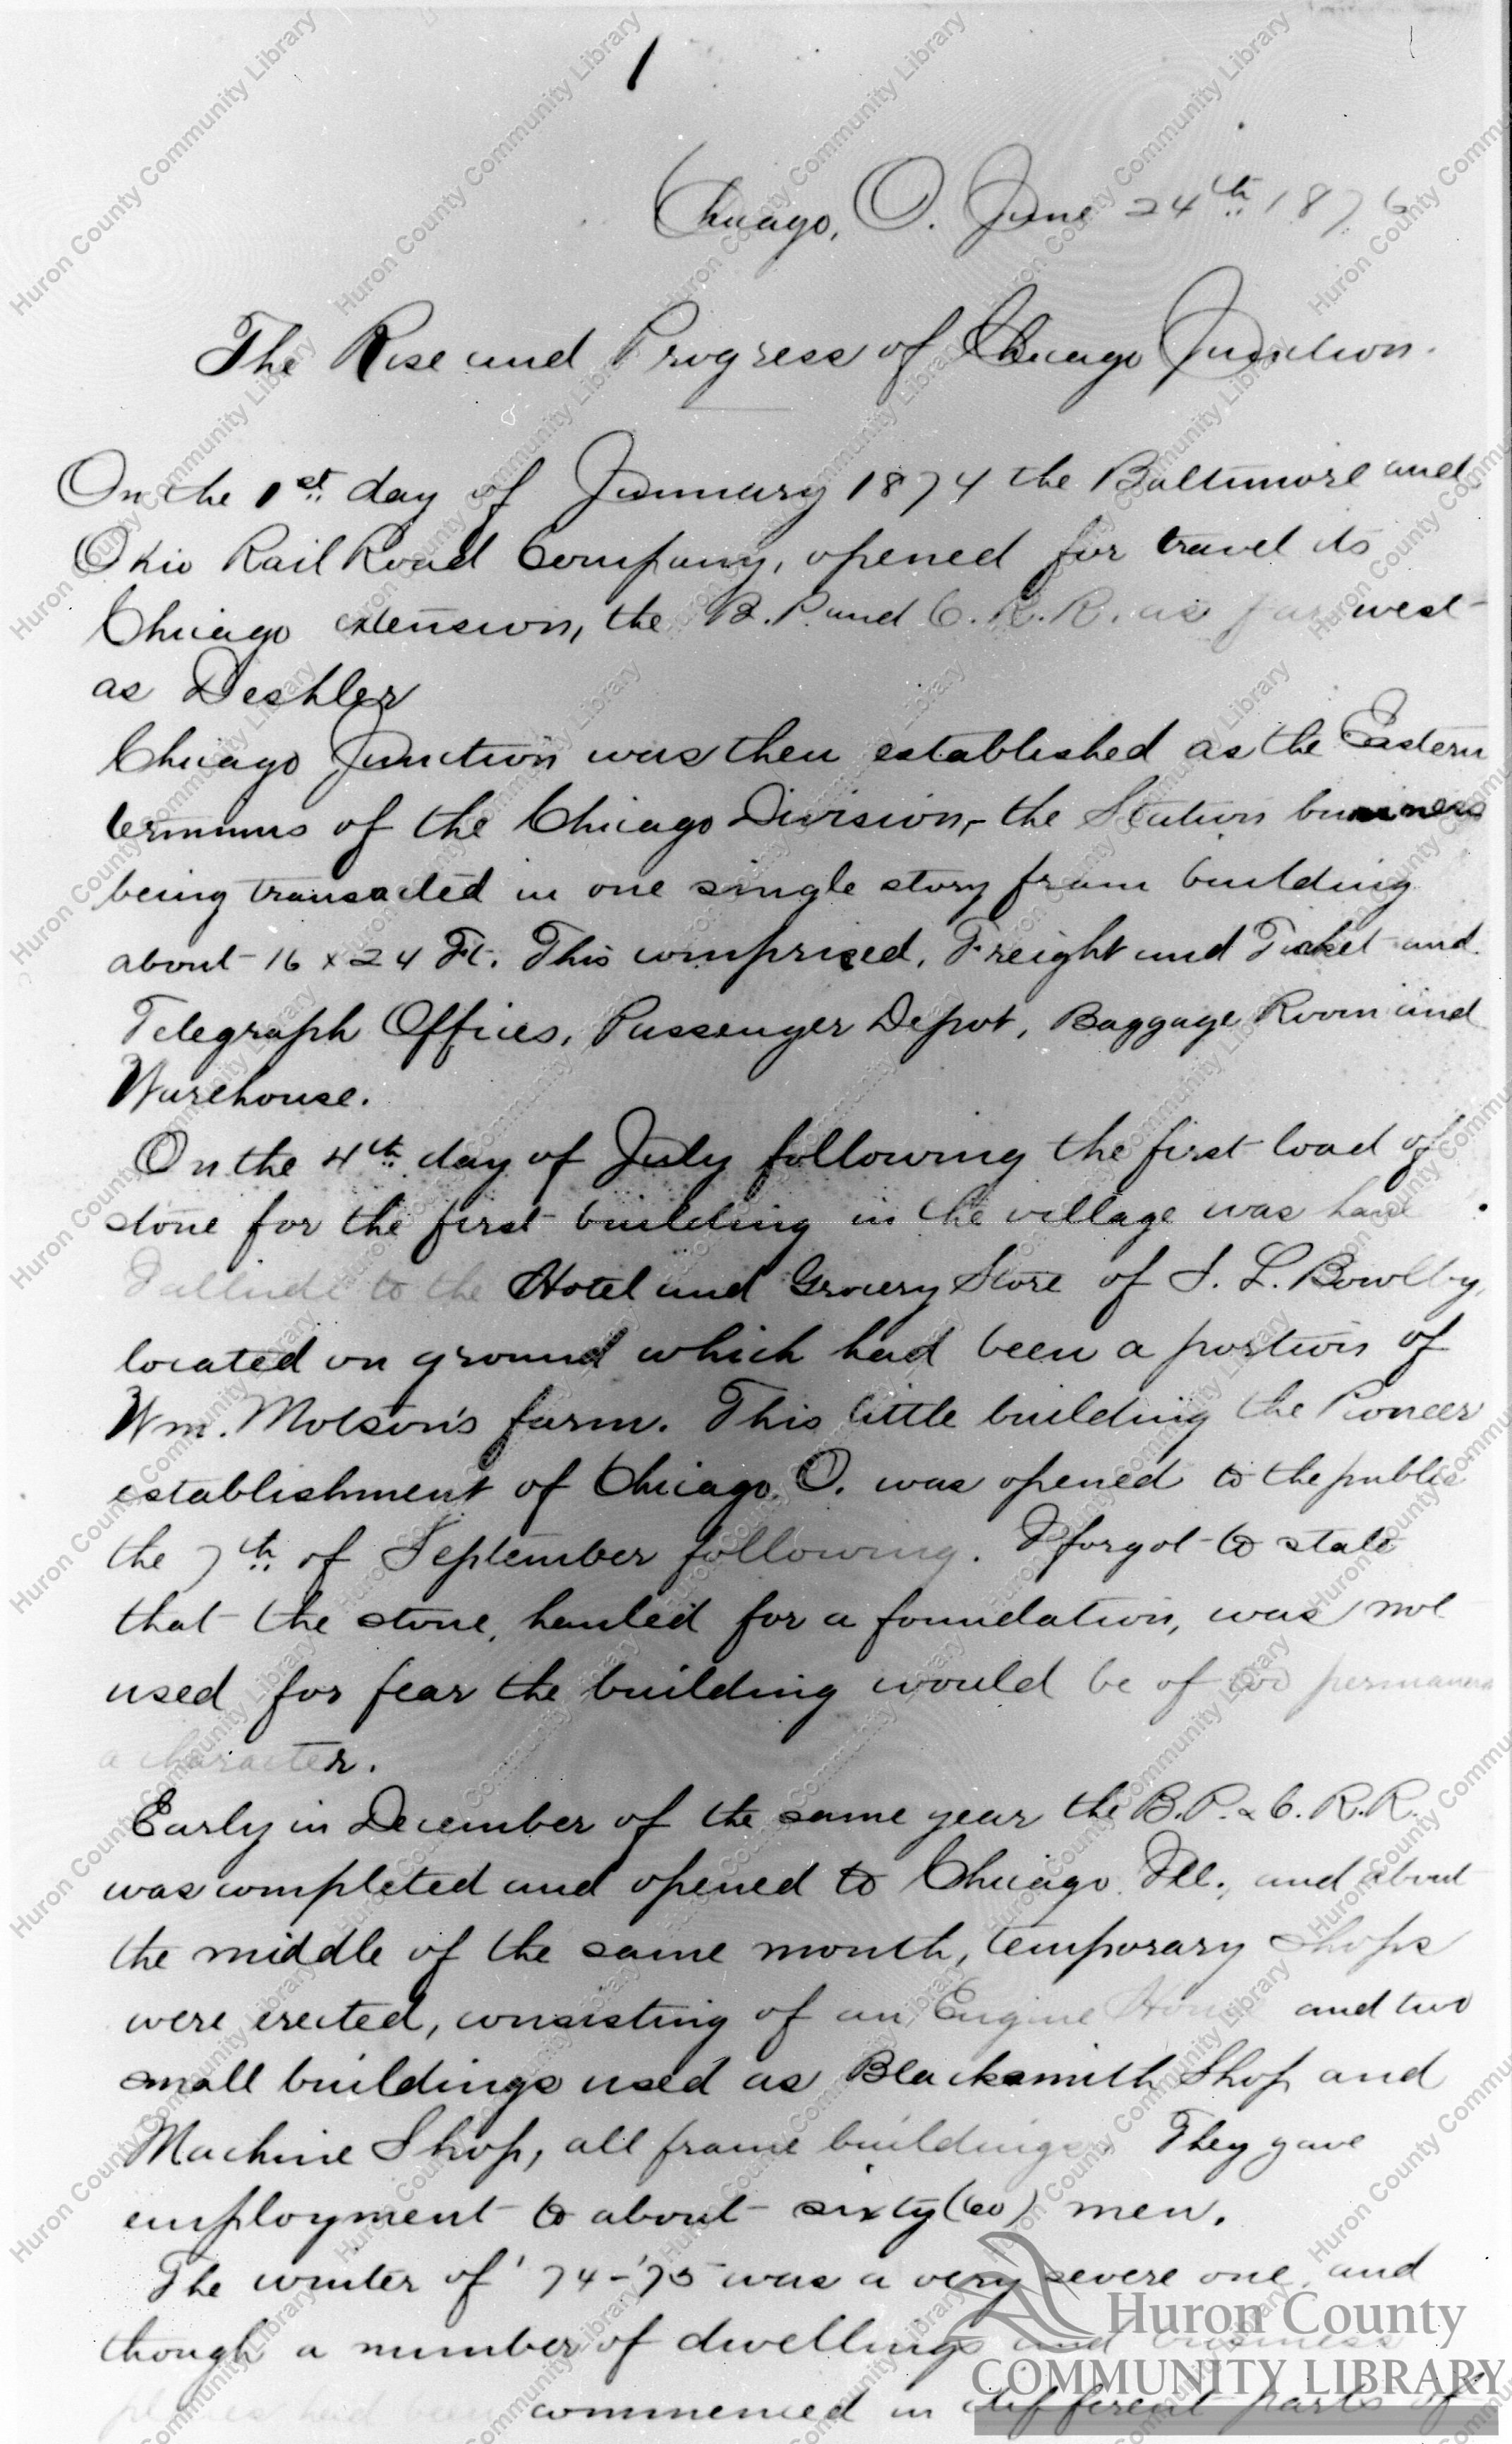 1
Chicago, O. June 24th 1876
The Rise and Progress of Chicago Junction.
On the 1st day of January 1874 the Baltimore and
Ohio Rail Road Company, opened for travel its
Chicago extension, the B. P. and C. R. R. as far west
as Deshler
Chicago Junction was then established as the Eastern
terminus of the Chicago Division, the Station business
being transacted in one single story fram building
about 16 x 24 Ft. This comprised, Freight and Ticket and
Telegraph Offices, Passenger Depot, Baggage Room and
Warehouse.
On the 4th day of July following the first load of
stone for the first building in the village was
I allude to the Hotel and Grocery Store of S. L. Bowlby,
located on ground which had been a portion of
Wm. Motson's farm. This little building the Pioneer
establishment of Chicago O. was opened to the public
the 7th of September following. I forgot to state
that the stone, hauled for a foundation, was not
used for fear the building would be of too permanent
a character.
Early in December of the same year the B. P. & C. R. R.
was completed and opened to Chicago Ill., and about
the middle of the same month, temporary shops
were erected, consisting of an Engine House and two
small buildings used as Blacksmith Shop and
Machine Shop, all frame buildings. They gave
employment to about sixty (60) men.
The winter of '74-'75 was a very severe one, and
though a number of dwellings and business
places had been commenced in different parts of
Huron County
COMMUNITY LIBRARY
Huron County Community Library